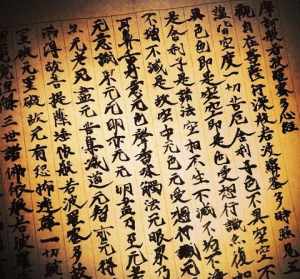 摩訶般若波羅蜜多心経
觀自在菩薩行深般若波羅蜜多時照見
蘊皆空度一切苦厄舍利子色不異空空不
異色色即是空空即是色受想行識亦復如
是舍利子是諸法空相不生不滅不垢不淨
不增不減是故空中无色无受想行識无眼
耳鼻舌身意无色聲香味觸法无眼界乃
至无意識界无无明亦无无明盡乃至无老
死亦无老死盡无苦集滅道无智亦无得
无所得故菩提薩埵依般若波羅蜜多故
心无罣礙无罣礙故无有恐怖遠離一切
究竟涅槃三世諸佛依般若波羅蜜